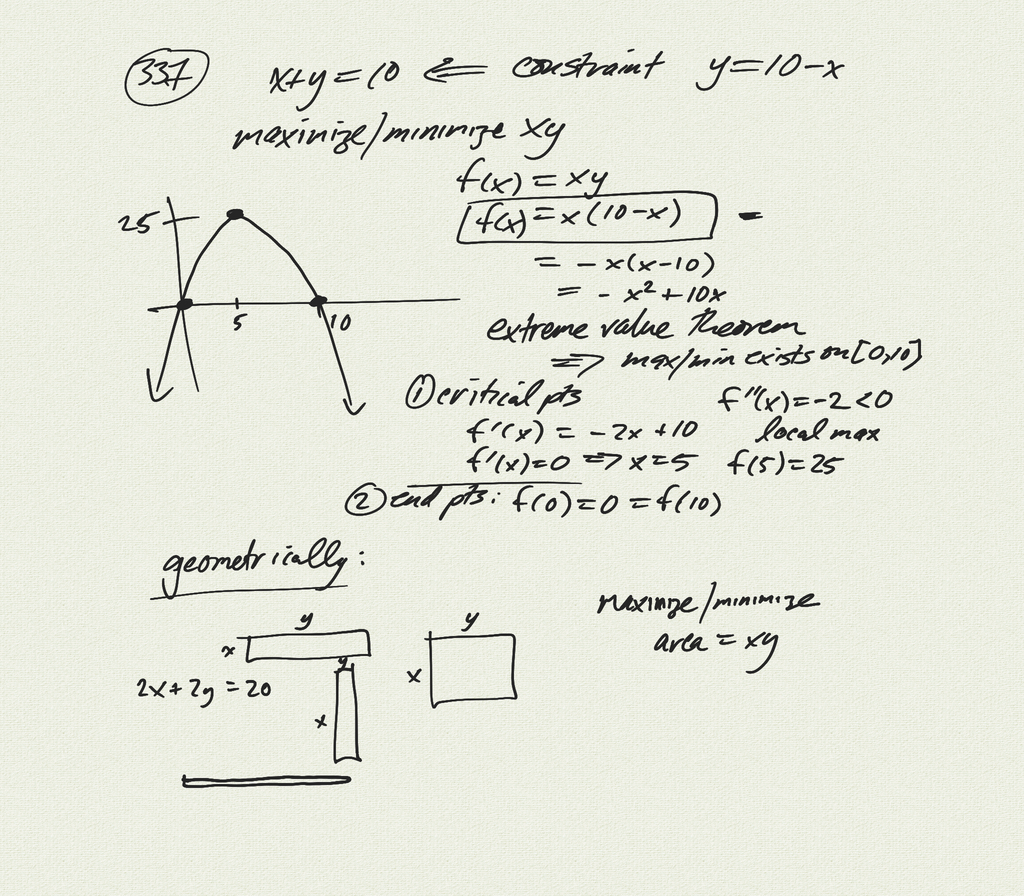 337 x+y=10 ⇐ constraint y=10-x
maximize/minimize xy
f(x) = xy
f(x) = x(10-x) =
= -x(x-10)
= -x²+10x
25
5 10
extreme value theorem
⇒ max/min exists on [0,10]
① critical pts f''(x)=-2<0
f'(x) = -2x+10 local max
f'(x)=0 ⇒ x=5 f(5)=25
② end pts: f(0)=0=f(10)
geometrically:
maximize/minimize
area = xy
y y
x
y
x
2x+2y=20
x